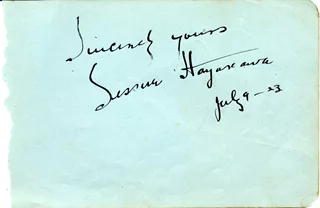 Sincerely yours
Sessue Hayakawa
July 9 – 23